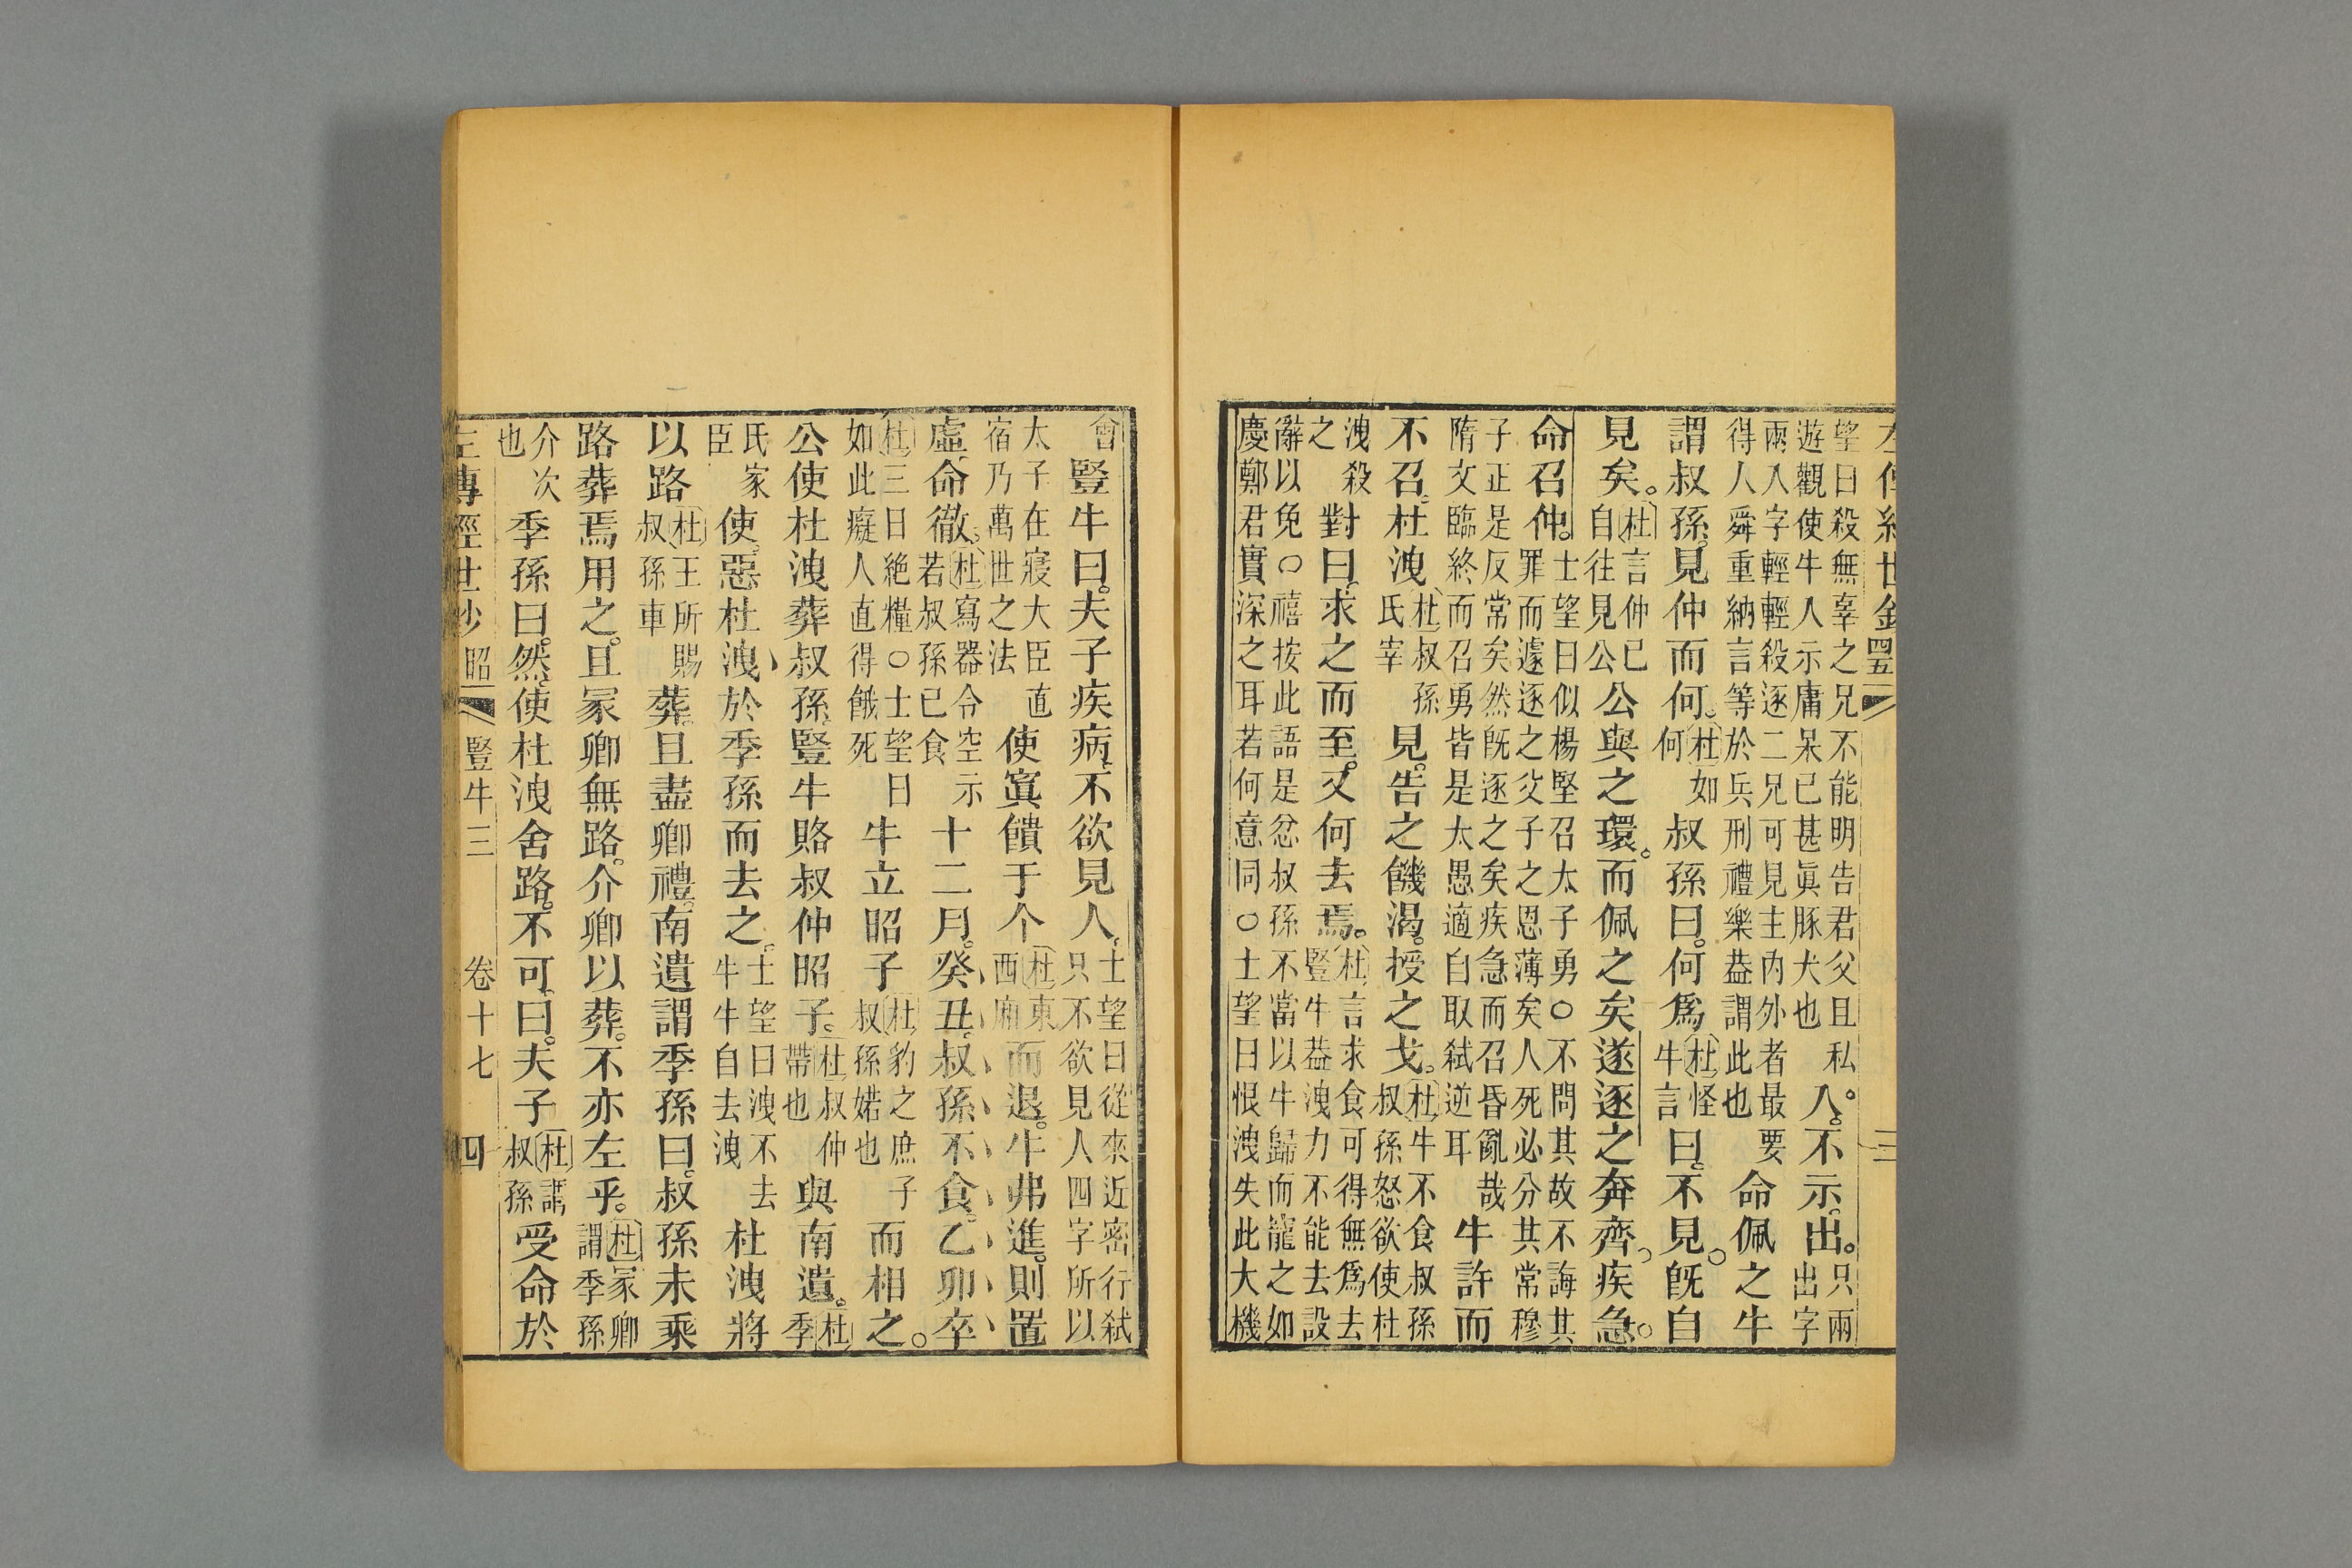 四五 三
望曰殺無辜之兄不能明告君父且私遊觀使牛人示庸呆已甚眞豚犬也入。不示。出。只兩出字
兩入字輕輕殺逐二兄可見主內外者最要得人舜重納言等於兵刑禮樂葢謂此也命佩之牛
謂叔孫。見仲而何。杜如何叔孫曰。何爲杜怪牛言曰。不見。旣自
見矣。杜言仲已自往見公公與之環。而佩之矣遂逐之奔齊。疾急。
命召仲。士望曰似楊堅召太子勇○不問其故不誨其罪而遽逐之父子之恩薄矣人死必分其常穆
子正是反常矣然旣逐之矣疾急而召昏亂哉隋文臨終而召勇皆是太愚適自取弑逆耳牛許而
不召。杜洩杜叔孫氏宰見。告之饑渴。授之戈。杜牛不食叔孫叔孫怒欲使杜
洩殺之對曰。求之而至。又何去焉。杜言求食可得無爲去豎牛葢洩力不能去設
辭以免○禧按此語是忿叔孫不當以牛歸而寵之如慶鄭君實深之耳若何意同○士望曰恨洩失此大機
會豎牛曰。夫子疾病。不欲見人。士望曰從來近密行弑只不欲見人四字所以
太子在寢大臣直宿乃萬世之法使寘饋于个杜東西廂而退。牛弗進。則置
虛。命徹。杜寫器令空示若叔孫已食十二月。癸丑。叔孫不食。乙卯卒
杜三日絶糧○士望曰如此癡人直得餓死牛立昭子杜豹之庶子叔孫婼也而相之。
公使杜洩葬叔孫。豎牛賂叔仲昭子。杜叔仲帶也與南遺。杜季
氏家臣使。惡杜洩於季孫而去之。士望曰洩不去牛牛自去洩杜洩將
以路杜王所賜叔孫車葬且盡卿禮。南遺謂季孫曰。叔孫未乘
路葬焉用之。且冢卿無路。介卿以葬。不亦左乎。杜冢卿謂季孫
介次也季孫曰。然。使杜洩舍路。不可。曰。夫子杜謂叔孫受命於
左傳經世鈔 昭 豎牛三 卷十七 四